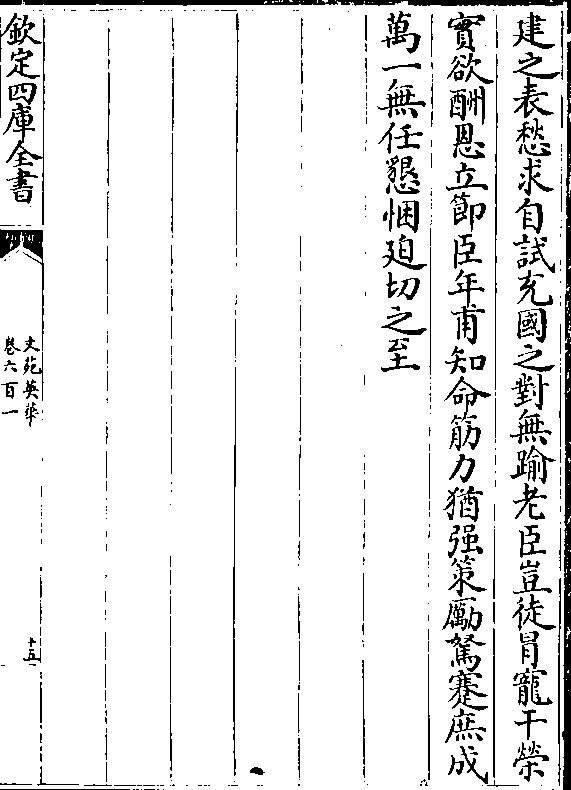 建之表愁求自試充國之對無踰老臣豈徒冒寵干榮
實欲酬恩立節臣年甫知命筋力猶强策勵駑蹇庶成
萬一無任懇悃廹切之至
欽定四庫全書
文苑英華
卷六百一
十五